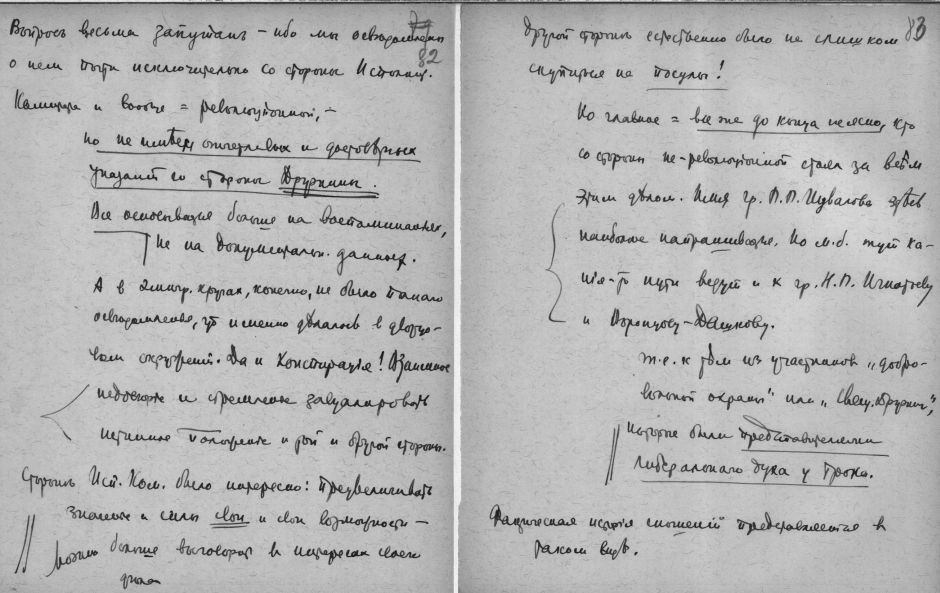 82
Вопросъ весьма запутанъ – ибо мы освѣдомлены
о немъ почти исключительно со стороны Исполнит.
Комитета и вообще = революціонной, –
но не имѣемъ отчетливыхъ и достовѣрныхъ
указаній со стороны Дружины.
Все основывается больше на воспоминаніяхъ,
не на документальн. данныхъ.
А в эмигр. кругах, конечно, не было такого
освѣдомленія, что именно дѣлалось в дворцо-
вом окруженіи. Да и конспирація! Взаимное
недовѣріе и стремленіе завуалировать
истинное положеніе и той и другой стороны.
Сторонѣ Исп. Ком. было интересно: преувеличивать
значеніе и силы свои и свои возможности –
можно больше выговорить в интересах своего
дѣла
83
Другой сторонѣ естественно было не слишком
скупиться на посулы!
Но главное = все же до конца неясно, кто
со стороны не-революціонной стоял за всѣм
этим дѣлом. Имя гр. П. П. Шувалова здѣсь
наиболѣе напрашивается. Но м.б. тут ка-
кія-то пути ведут и к гр. Н. П. Игнатьеву
и Воронцову-Дашкову.
т.е. к тѣм из участников "добро-
вольной охраны" или "Свящ. Дружины",
которые были представителями
либеральнаго духа у Трона.
Фактическая исторія сношеній представляется в
таком видѣ.